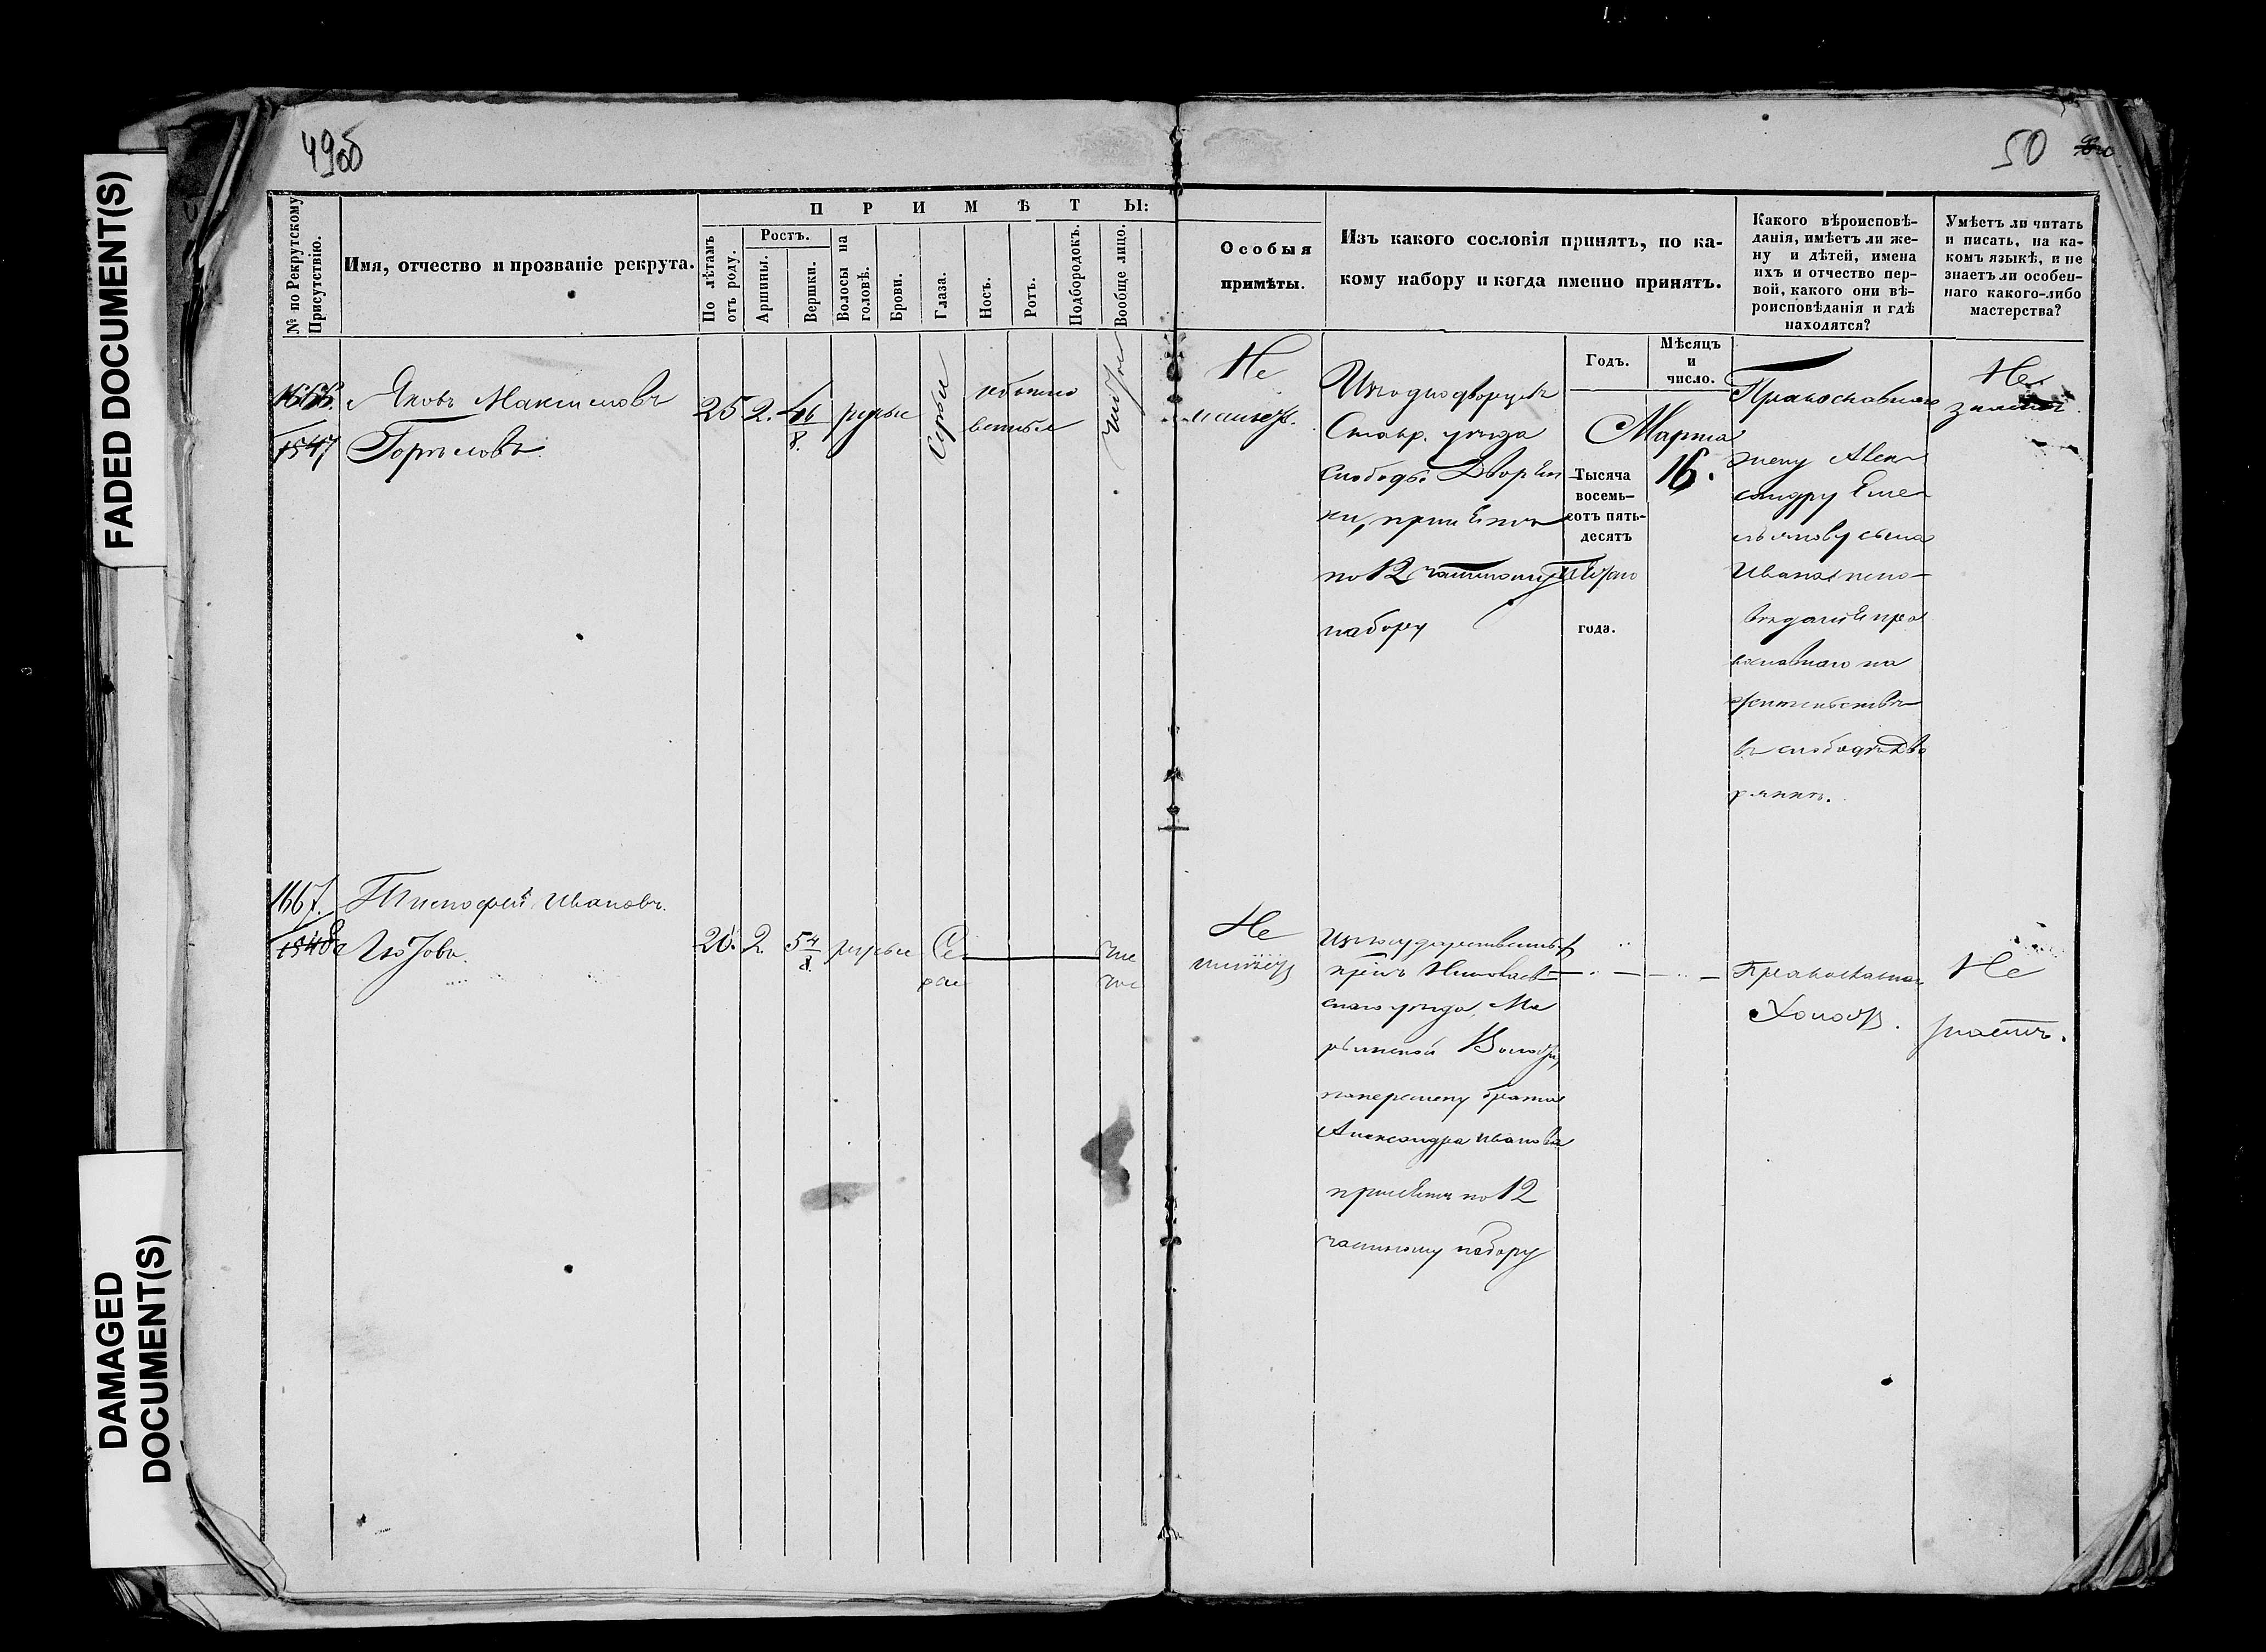 FADED DOCUMENT(S)
DAMAGED
DOCUMENT(S)
49об
50
№ по Рекрутскому
Присутствію.
Имя, отчество и прозваніе рекрута.
П Р И М Ѣ Т Ы:
По лѣтамъ
отъ роду.
Ростъ.
Аршины.
Вершки.
Волосы на
головѣ.
Брови.
Глаза.
Носъ.
Ротъ.
Подбородокъ.
Вообще лицо.
Особыя
примѣты.
Изъ какого сословія принятъ, по ка-
кому набору и когда именно принятъ.
Какого вѣроисповѣ-
данія, имѣетъ ли же-
ну и дѣтей, имена
ихъ и отчество пер-
вой, какого они вѣ-
роисповѣданія и гдѣ
находятся?
Умѣетъ ли читать
и писать, на ка-
комъ языкѣ, и не
знаетъ ли особен-
наго какого-либо
мастерства?
Годъ.
Мѣсяцъ
и
число.
1666.
1547
Яковъ Максимовъ
Горѣловъ
25
2.
4 6/8
русые
Сѣрые
обыкно
венные
чистое
Не
имѣетъ.
Изъ однодворцевъ
Ставр. уѣзда
Слободы Дворян
ки, принятъ
по 12 частному
набору
Тысяча
восемь-
сотъ пять-
десятъ
года.
Марта
16.
Православнаго
жену Алек
сандру Емел
ьянову сына
Ивана испо-
вѣданія пра
вославнаго на
жительствѣ
въ слободѣ Дво
рянкѣ.
Не
знаетъ.
1667.
1548
Тимофей Ивановъ
20.
2.
5 4/8
русые
Сѣ
рые
чис
тое
Не
имѣетъ
Изъ государственныхъ
крѣст. Николаев
скаго уѣзда, Ма
рьинской Волости,
наперемену брата
Александра Иванова
принятъ по 12
частному набору
Православнаго
Холостъ.
Не
знаетъ.